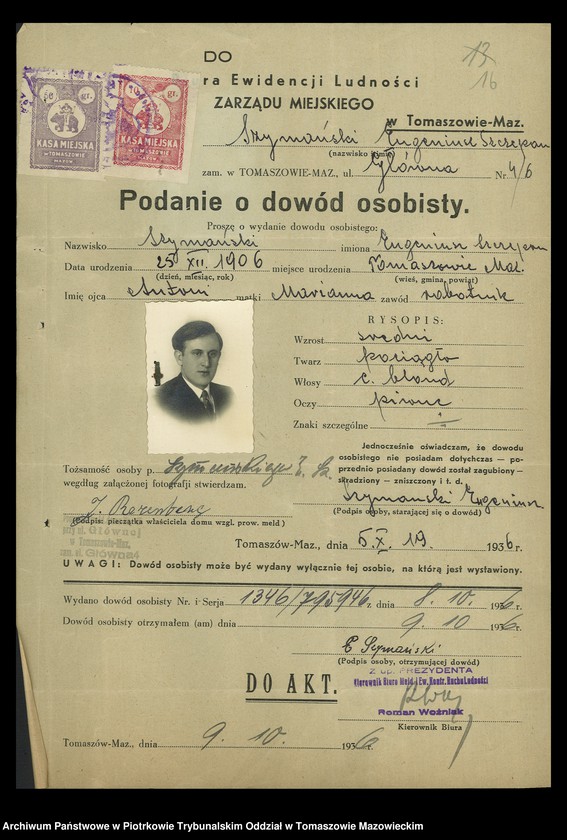 DO
13
16
ra Ewidencji Ludności
ZARZĄDU MIEJSKIEGO
w Tomaszowie-Maz.
50 gr.
KASA MIEJSKA
W TOMASZOWIE
MAZOW.
gr.
KASA MIEJSKA
W TOMASZOWIE
MAZOW.
Szymański Eugeniusz Szczepan
(nazwisko i imię)
zam. w TOMASZOWIE-MAZ., ul. Główna Nr. 4/6
Podanie o dowód osobisty.
Proszę o wydanie dowodu osobistego:
Nazwisko Szymański imiona Eugeniusz Szczepan
Data urodzenia 25 XII. 1906 miejsce urodzenia Tomaszowie Maz.
(dzień, miesiąc, rok) (wieś, gmina, powiat)
Imię ojca Antoni matki Marianna zawód robotnik
RYSOPIS:
Wzrost średni
Twarz pociągła
Włosy c. blond
Oczy piwne
Znaki szczególne
Jednocześnie oświadczam, że dowodu
osobistego nie posiadam dotychczas — po-
przednio posiadany dowód został zagubiony —
skradziony — zniszczony i t. d.
Tożsamość osoby p. Szymańskiego E. Sz.
według załączonej fotografji stwierdzam.
Szymański Eugeniusz
(Podpis osoby, starającej się o dowód)
J. Rozenberg
(Podpis i pieczątka właściciela domu wzgl. prow. meld.)
Głównej
w Tomaszowie-Maz.
Główna 4
Tomaszów-Maz., dnia 5.X. 19. 1936 r.
UWAGI: Dowód osobisty może być wydany wyłącznie tej osobie, na którą jest wystawiony.
Wydano dowód osobisty Nr. i Serja 1346/795946 z dnia 8. 10. 1936 r.
Dowód osobisty otrzymałem (am) dnia 9. 10 1936 r.
E Szymański
(Podpis osoby, otrzymującej dowód)
Z up. PREZYDENTA
Kierownik Biura Meld. i Ew. Kontr. Ruchu Ludności
DO AKT.
Roman Woźniak
Kierownik Biura
Tomaszów-Maz., dnia 9. 10. 1936
Archiwum Państwowe w Piotrkowie Trybunalskim Oddział w Tomaszowie Mazowieckim